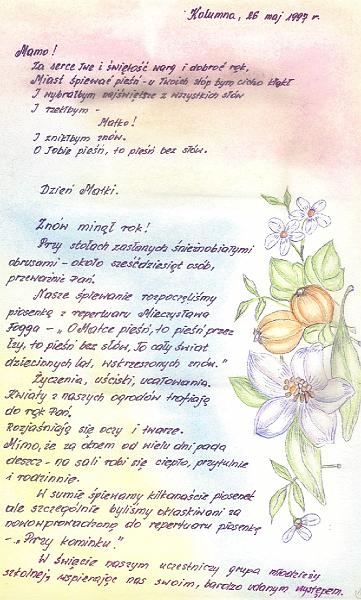 Kolumna, 26 maj 1997 r.
Mamo!
Za serce Twe i świętość warg i dobroć rąk,
Miast śpiewać pieśń - u Twoich stóp bym cicho kląkł
I wybrałbym najświętsze z wszystkich słów
I rzekłbym -
Matko!
I znikłbym znów.
O Tobie pieśń, to pieśń bez słów.
Dzień Matki.
Znów minął rok!
Przy stołach zasłanych śnieżnobiałymi
obrusami - około sześćdziesiąt osób,
przeważnie Pań.
Nasze śpiewanie rozpoczęliśmy
piosenką z repertuaru Mieczysława
Fogga - „O Matce pieśń, to pieśń przez
łzy, to pieśń bez słów, To cały świat
dziecinnych lat, wskrzeszonych znów."
Życzenia, uściski, ucałowania.
Kwiaty z naszych ogrodów trafiają
do rąk Pań.
Rozjaśniają się oczy i twarze.
Mimo, że za oknem od wielu dni pada
deszcz - na sali robi się ciepło, przytulnie
i rodzinnie.
W sumie śpiewamy kilkanaście piosenek
ale szczególnie byliśmy oklaskiwani za
nowowprowadzoną do repertuaru piosenkę
- „Przy kominku."
W święcie naszym uczestniczy grupa młodzieży
szkolnej, wspierając nas swoim, bardzo udanym występem.